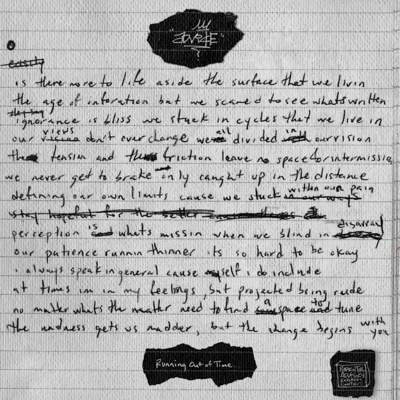 easily
is there more to life aside the surface that we livin
the age of inforation but we scared to see whats written
ignorance is bliss we stuck in cycles that we live in
our views don't ever change we all divided in our vision
the tension and the friction leave no space for intermissio
we never get to brake only caught up in the distance
defining our own limits cause we stuck within our pain
stay hopeful for the better
perception is whats missin when we blind in disarray
our patience runnin thinner its so hard to be okay
i always speak in general cause myself i do include
at times im in my feelings, but projected being rude
no matter whats the matter need to find a space to tune
the madness gets us madder, but the change begins with you
Running Out of Time.
PARENTAL
ADVISORY
EXPLICIT
CONTENT